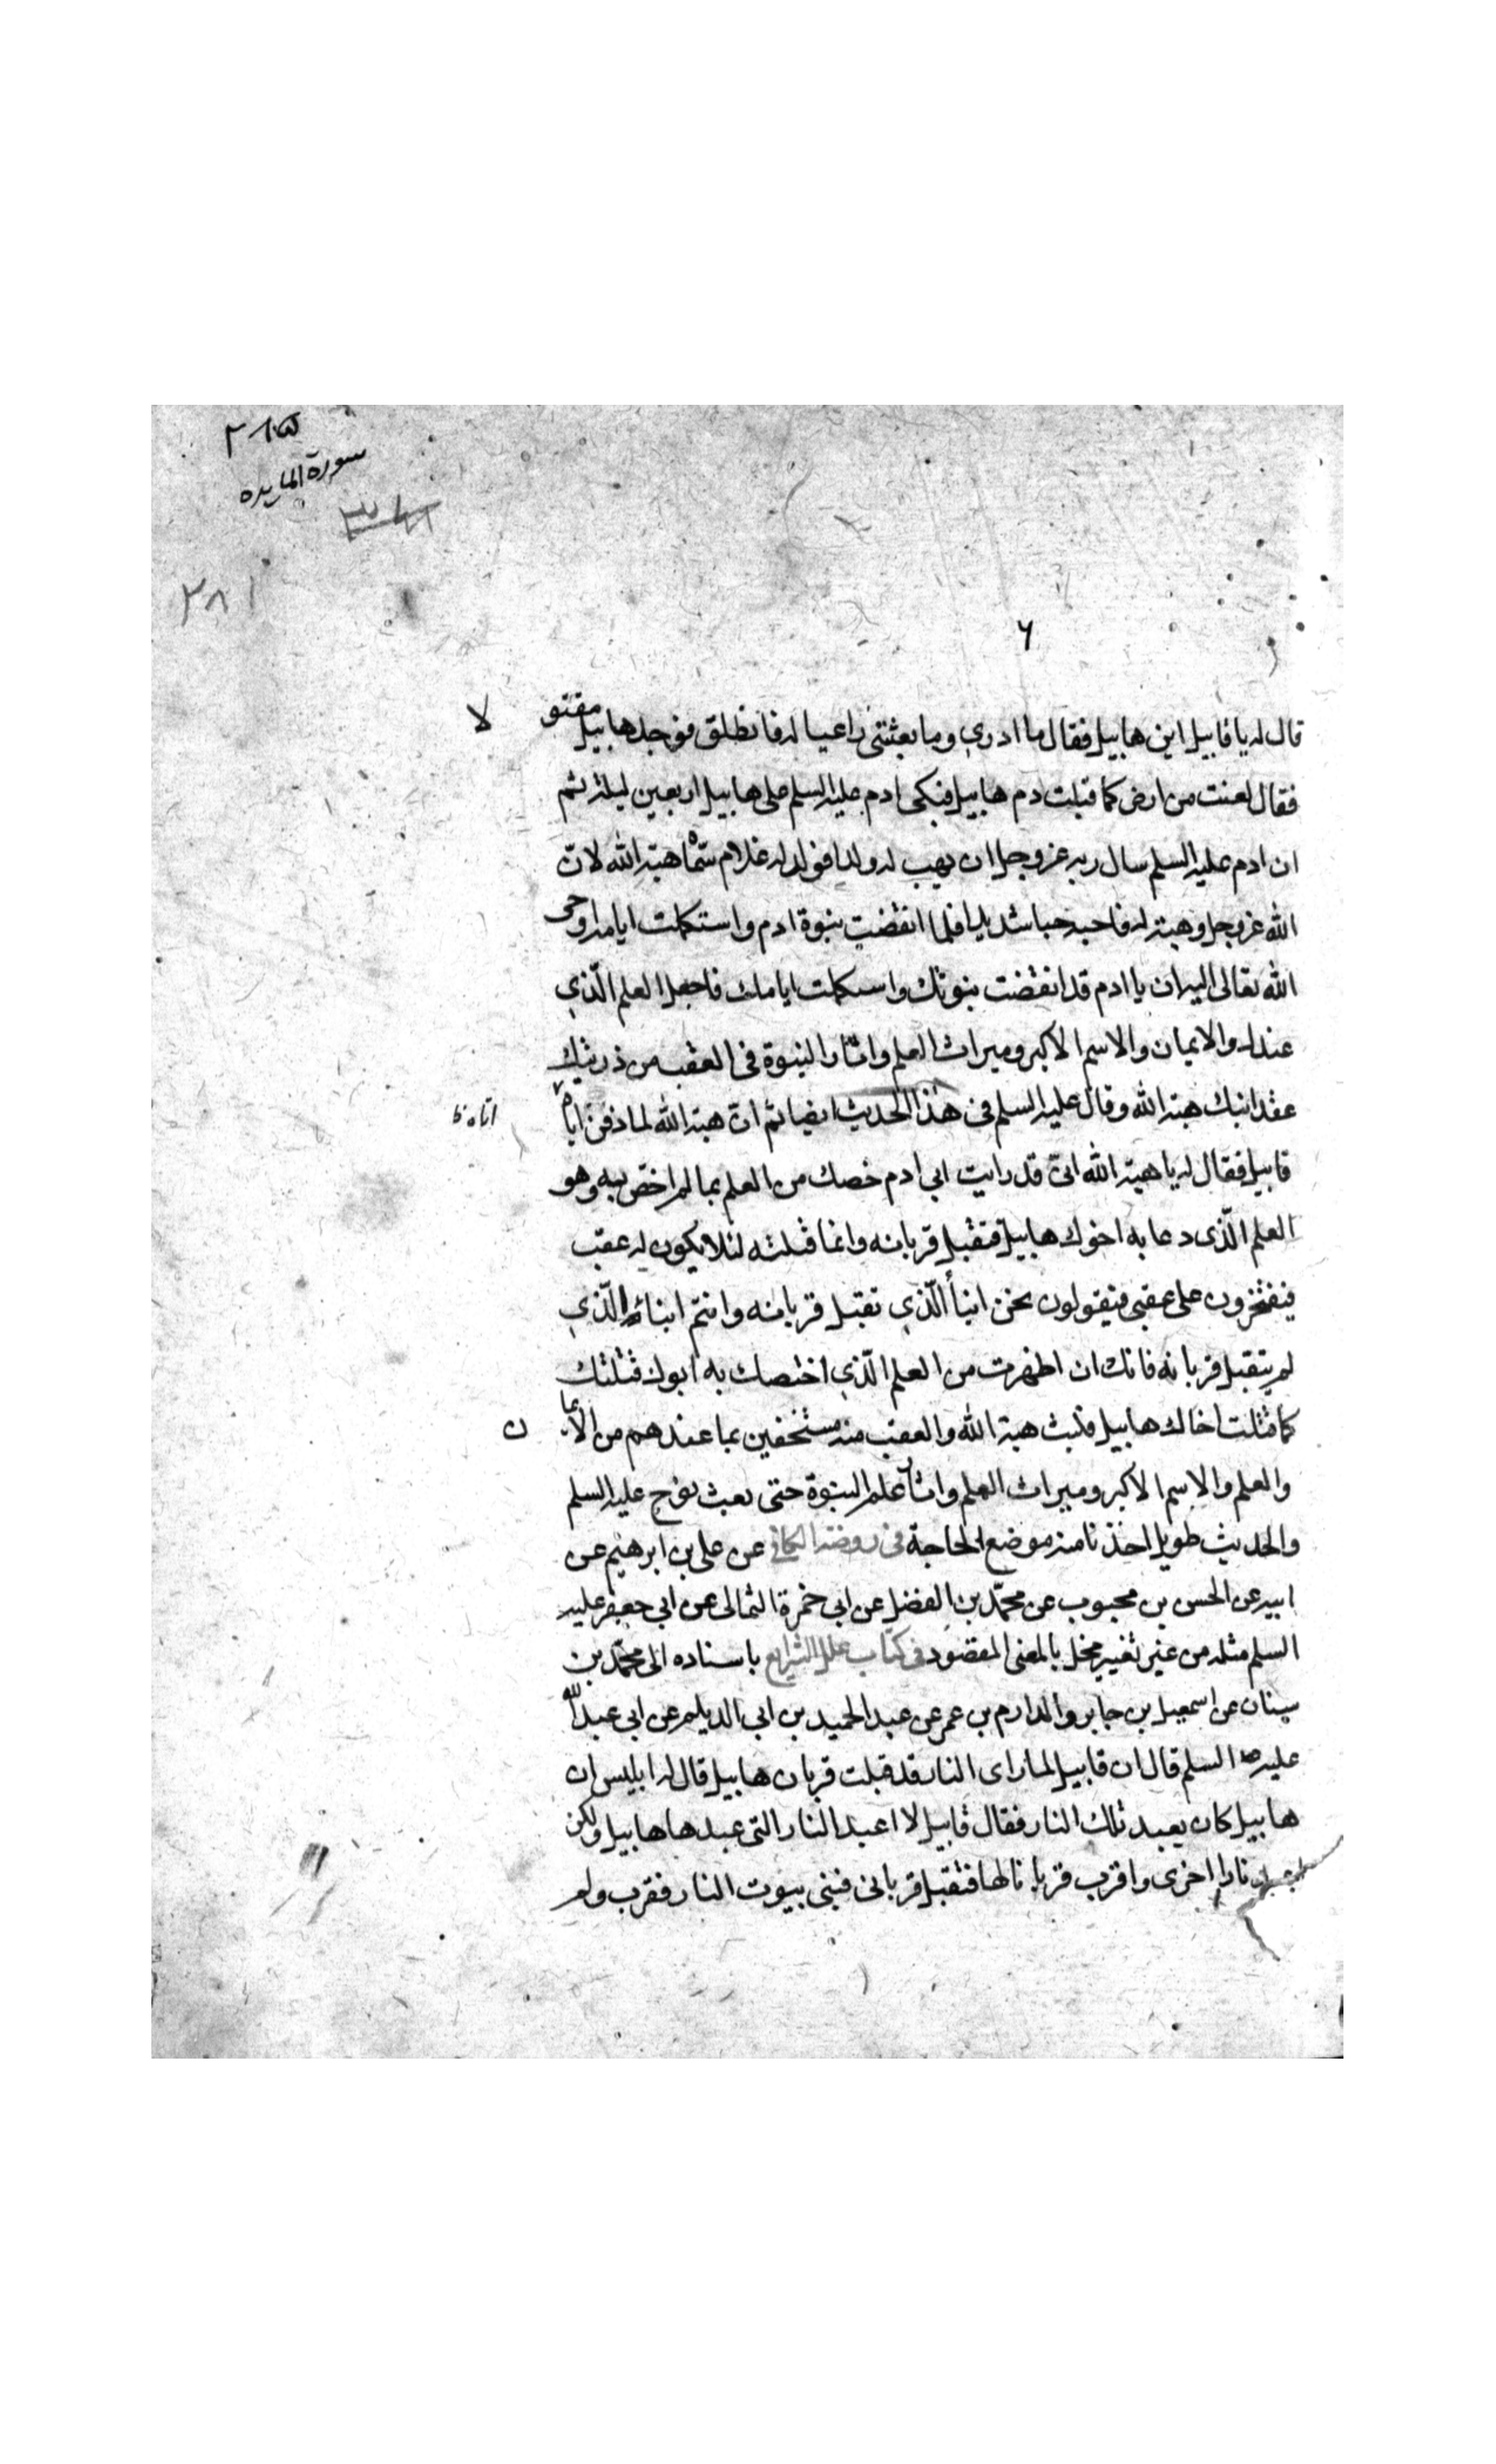 ٣٨٥
سورة المايده
٣٨١
٦
قال له يا قابيل اين هابيل فقال ما ادرى وما بعثتنى راعيا له فانطلق فوجد هابيل مقتو
لا
فقال لعنت من ارض كما قبلت دم هابيل فبكى ادم عليه السلم على هابيل اربعين ليلة ثم
ان ادم عليه السلم سال ربه عز وجل ان يهب له ولدا فولد له غلام سمّاه هبة الله لانّ
الله عز وجل وهبه له فاحبه حبا شديدا فلما انقضت نبوة ادم واستكملت ايامه اوحى
الله تعالى اليه ان يا ادم قد انقضت نبوتك واستكملت ايامك فاجعل العلم الّذي
عندك والايمان والاسم الاكبر وميراث العلم واثار النبوة فى العقب من ذريتك
عند ابنك هبة الله وقال عليه السلم فى هذا الحديث ايضا ثم انّ هبة الله لما دفن اباه
اتاه ظ
قابيل فقال له يا هبة الله انّى قد رايت ابي ادم خصك من العلم بما لم اخصّ به وهو
العلم الّذى دعا به اخوك هابيل فتقبل قربانه وانما قتلته لئلا يكون له عقب
فيفتخرون على عقبى فيقولون نحن ابنأ الّذي تقبّل قربانه وانتم ابناء الّذي
لم يتقبل قربانه فانك ان اظهرت من العلم الّذي اختصك به ابوك قتلتك
كما قتلت اخاك هابيل فلبث هبة الله والعقب منه مستخفين بما عندهم من الايما
ن
والعلم والاسم الاكبر وميراث العلم واثار علم النبوة حتى بعث نوح عليه السلم
والحديث طويل اخذنا منه موضع الحاجة فى روضة الكافى عن على بن ابرهيم عن
ابيه عن الحسن بن محبوب عن محمّد بن الفضل عن ابى حمزة الثمالى عن ابي جعفر عليه
السلم مثله من غير تغيير مخل بالمعنى المقصود فى كتاب علل الشرايع باسناده الى محمّد بن
سنان عن اسمعيل بن جابر والدارم بن عمر عن عبد الحميد بن ابى الديلم عن ابى عبد الله
عليه السلم قال ان قابيل لما راى النار قد قبلت قربان هابيل قال له ابليس ان
هابيل كان يعبد تلك النار فقال قابيل لا اعبد النار التى عبدها هابيل ولكن
اعبد نارا اخرى واقرب قربانا لها فتقبل قربانى فبنى بيوت النار فقرب ولم